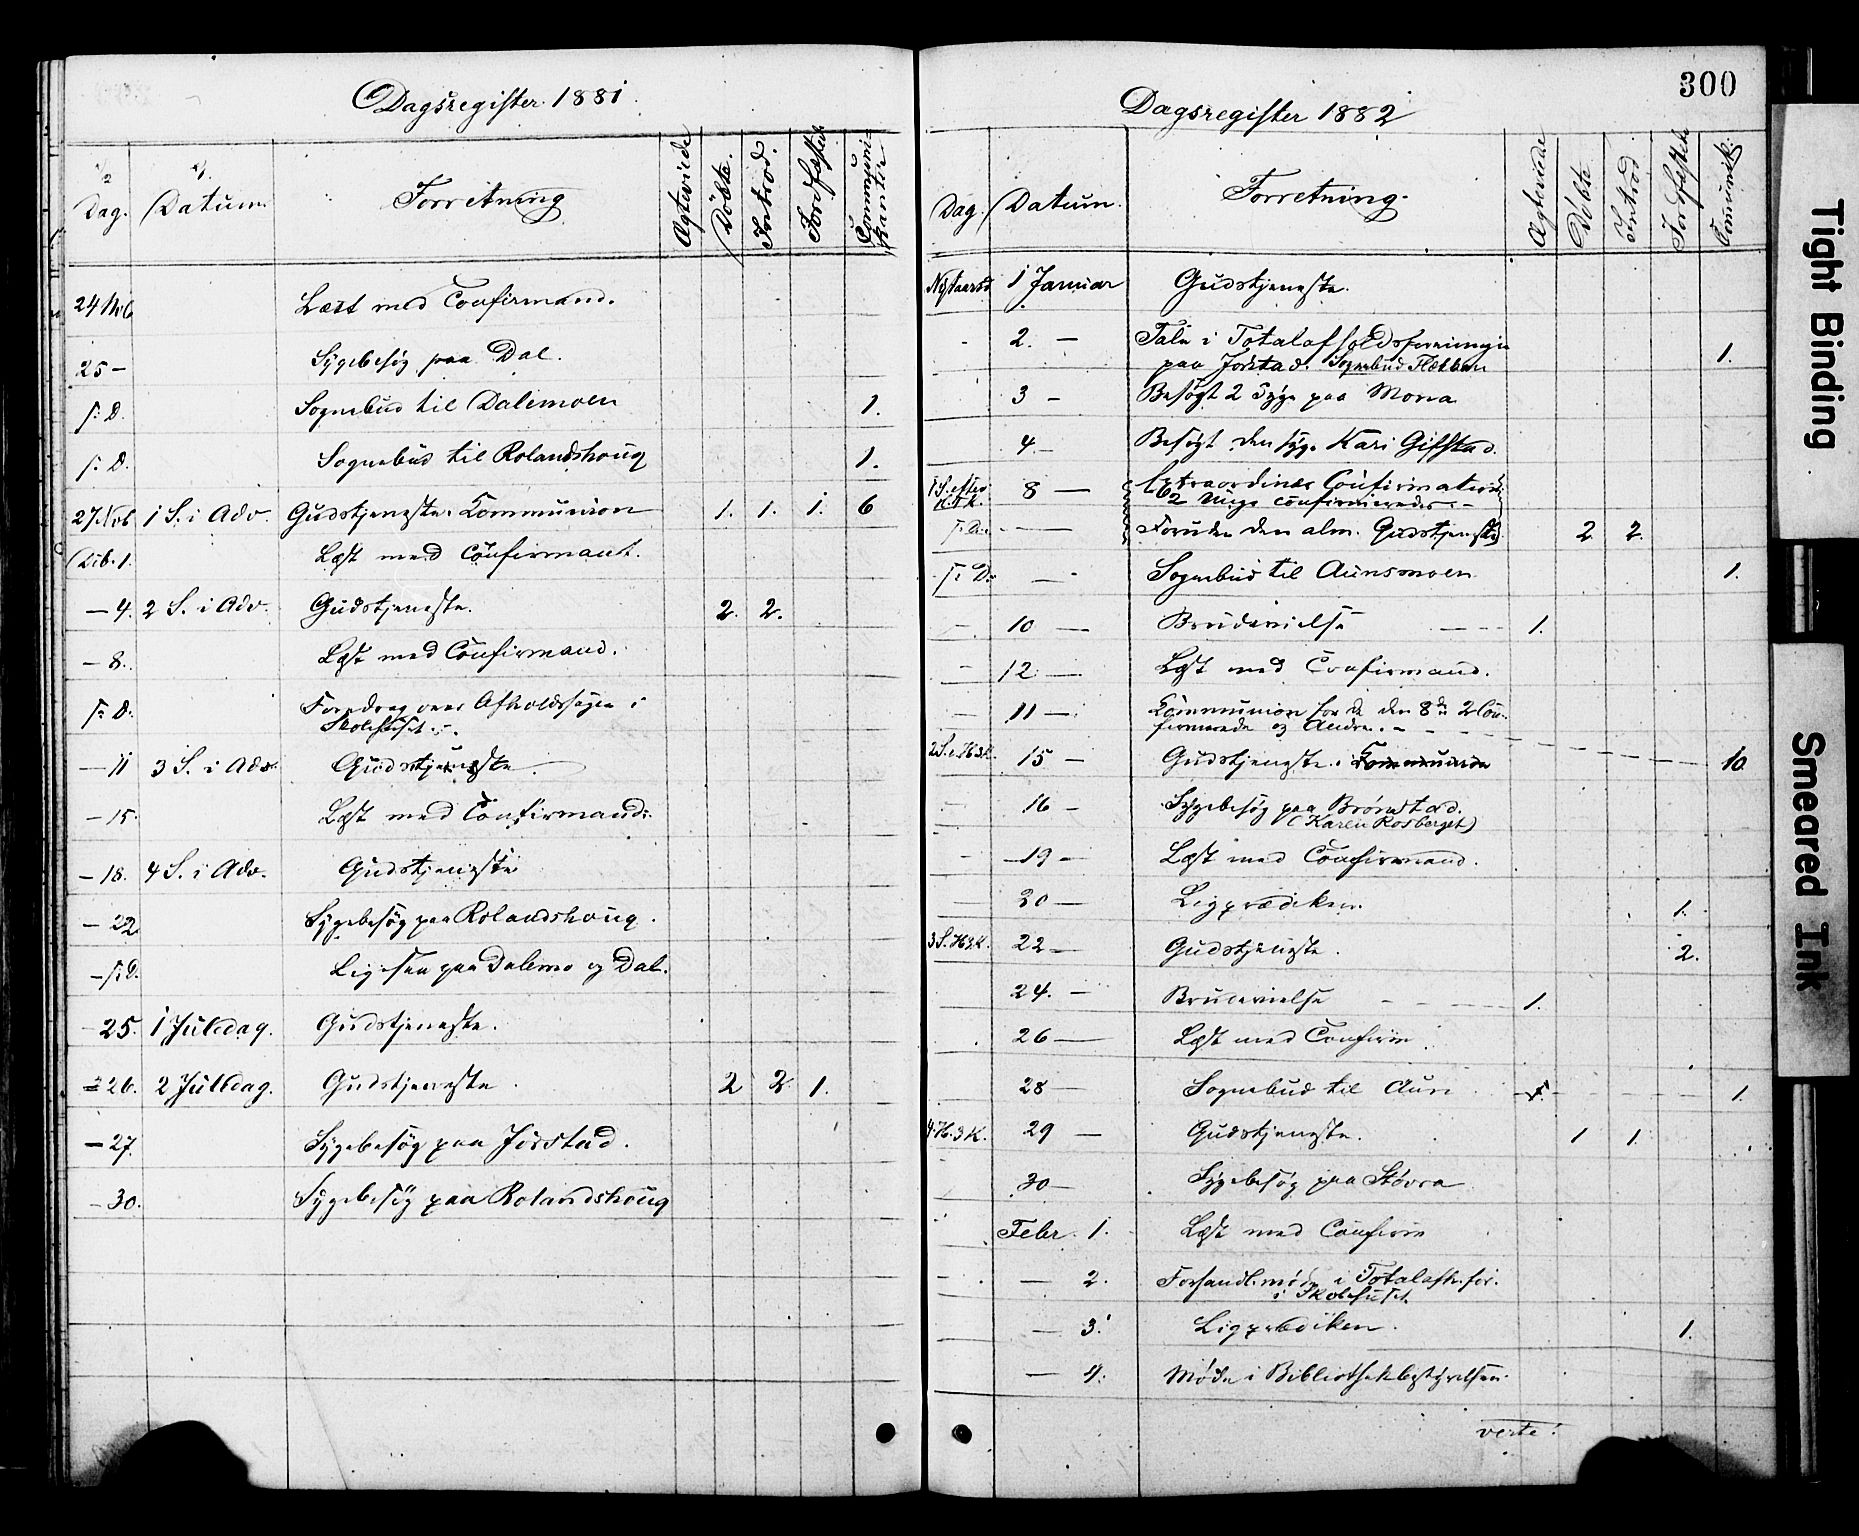 Dagsregister 1881.
Dag. Datum. Forretning Ægteviede Döbte. Introd. Jordfæstede Communikanter
24 Nvb Læst med Confirmand.
25 – Sygebesög paa Dal.
S: D. Sognebud til Dalemoen 1.
S: D. Sognebud til Rolandshoug 1.
27 Nvb 1 S. i Adv. Gudstjeneste. Kommunion 1. 1. 1. 6
Dcb. 1. Læst med Confirmant.
– 4. 2 S. i Adv. Gudstjeneste. 2. 2.
– 8. Læst med Confirmand.
S: D: Foredrag over Afholdssagen i
Skolehuset.
– 11 3 S. i Adv. Gudstjeneste
– 15. Læst med Confirmand:
– 18. 4 S. i Adv. Gudstjeneste
– 22 Sygebesög paa Rolandshoug.
– S: D. Ligisen paa Dalemo og Dal.
25. 1 Juledag. Gudstjeneste.
– 26. 2 Juledag. Gudstjeneste. 2 2 1.
– 27. Sygebesög paa Jörstad.
– 30. Sygebesög paa Rolandshoug
300
Dagsregister 1882
Dag. Datum. Forretning. Ægteviede Döbte Introd. Jordfæstede Comunik.
Nytaarsd. 1 Januar Gudstjeneste.
2. – Tale i Totalafholdsforeningen
paa Jörstad. Sognebud Flækken 1.
3 – Besøgt 2 Syge paa Mona
4. – Besøgt den syge Kari Gifstad.
1 S. efter
H. 3 K. 8 – Extraordinær Confirmation
2 Unge confirmeredes. –
S: D: – Foruden den alm. Gudstjeneste 2. 2.
S: D: – Sognebud til Aunsmoen 1.
10 – Brudevielse 1.
12 – Læst med Confirmand.
11 – Kommunion for de den 8de 2 Con-
firmerede og Andre. –
2 S. e. H 3 K. 15 – Gudstjeneste. Kommunion 10
16 – Sygebesög paa Brönstad.
(Karen Rosberget)
19 – Læst med Confirmand.
20 – Ligprædiken. 1.
3 S. H 3 K. 22 – Gudstjeneste. 2.
24. – Brudevielse 1.
26 – Læst med Confirm
28 – Sognebud til Aun 1.
4. H. 3 K. 29 – Gudstjeneste. 1 1.
30 – Sygebesög paa Stövra
Febr. 1. Læst med Confirm
– 2. Forhandl.møde i Totalafh. for.
i Skolehuset.
– 3. Ligprædiken. 1.
– 4. Møde i Bibliothekbestyrelsen.
verte!
Tight Binding
Smeared Ink